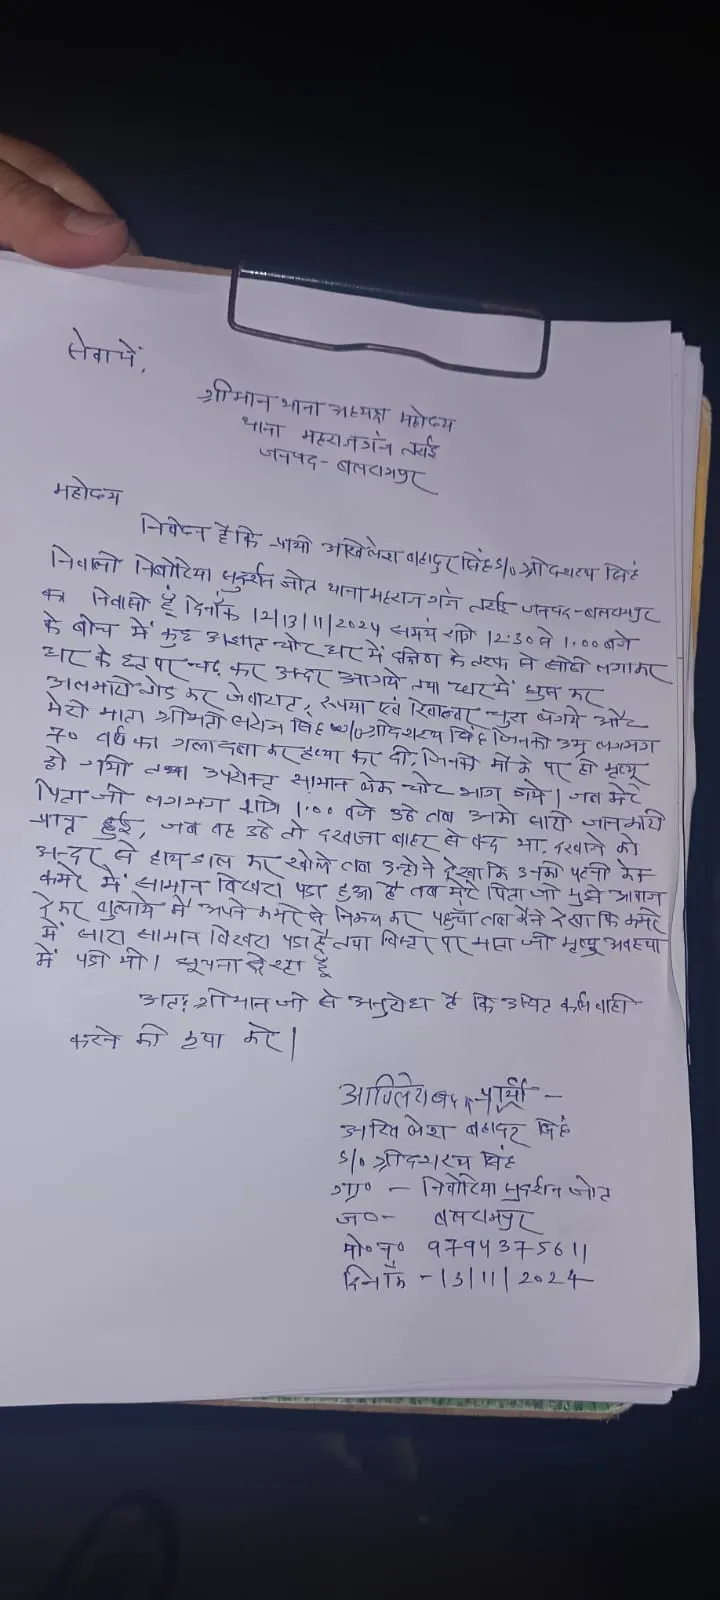 सेवा में,
श्रीमान थाना अध्यक्ष महोदय
थाना महराजगंज तराई
जनपद - बलरामपुर
महोदय
निवेदन है कि प्रार्थी अखिलेश बहादुर सिंह s/o श्री दशरथ सिंह
निवासी निबोरिया सुदर्शन जोत थाना महराजगंज तराई जनपद-बलरामपुर
का निवासी हूँ दिनाँक 12/13/11/2024 समय रात्रि 12:30 से 1:00 बजे
के बीच में कुछ अज्ञात चोर घर में दक्षिण के तरफ से सीढी लगाकर
घर के छत पर चढ़ कर अन्दर आ गये तथा घर में घुस कर
अलमारी तोड़ कर जेवरात, रूपया एवं रिवाल्वर चुरा ले गये और
मेरी माता श्रीमती सरोज सिंह w/o श्री दशरथ सिंह जिनकी उम्र लगभग
70 वर्ष का गला दबा कर हत्या कर दी, जिनकी मौके पर ही मृत्यू
हो गयी तथा उपरोक्ट सामान लेक चोर भाग गये। जब मेरे
पिता जी लगभग रात्रि 1:00 बजे उठे तब उनको सारी जानकारी
प्राप्त हुई, जब वह उठे तो दरवाजा बाहर से बन्द था, दरवाजे को
अन्दर से हाथ डाल कर खोले तब उन्होने देखा कि उनकी पत्नी के
कमरे में सामान बिखरा पडा हुआ है तब मेरे पिता जी मुझे आवाज
देकर बुलाये मैं अपने कमरे से निकल कर पहुँचा तब मैंने देखा कि कमरे
में सारा सामान बिखरा पडा है तथा बिस्तर पर माता जी मृत्यु अवस्था
में पडी थी। सूचना दे रहा हूँ
अतः श्रीमान जी से अनुरोध है कि उचित कार्यवाही
करने की कृपा करे।
प्रार्थी -
अखिलेश बहादुर सिंह
s/o श्री दशरथ सिंह
ग्रा० - निबोरिया सुदर्शन जोत
ज० - बलरामपुर
मो० न० 9794375611
दिनाँक - 13/11/2024